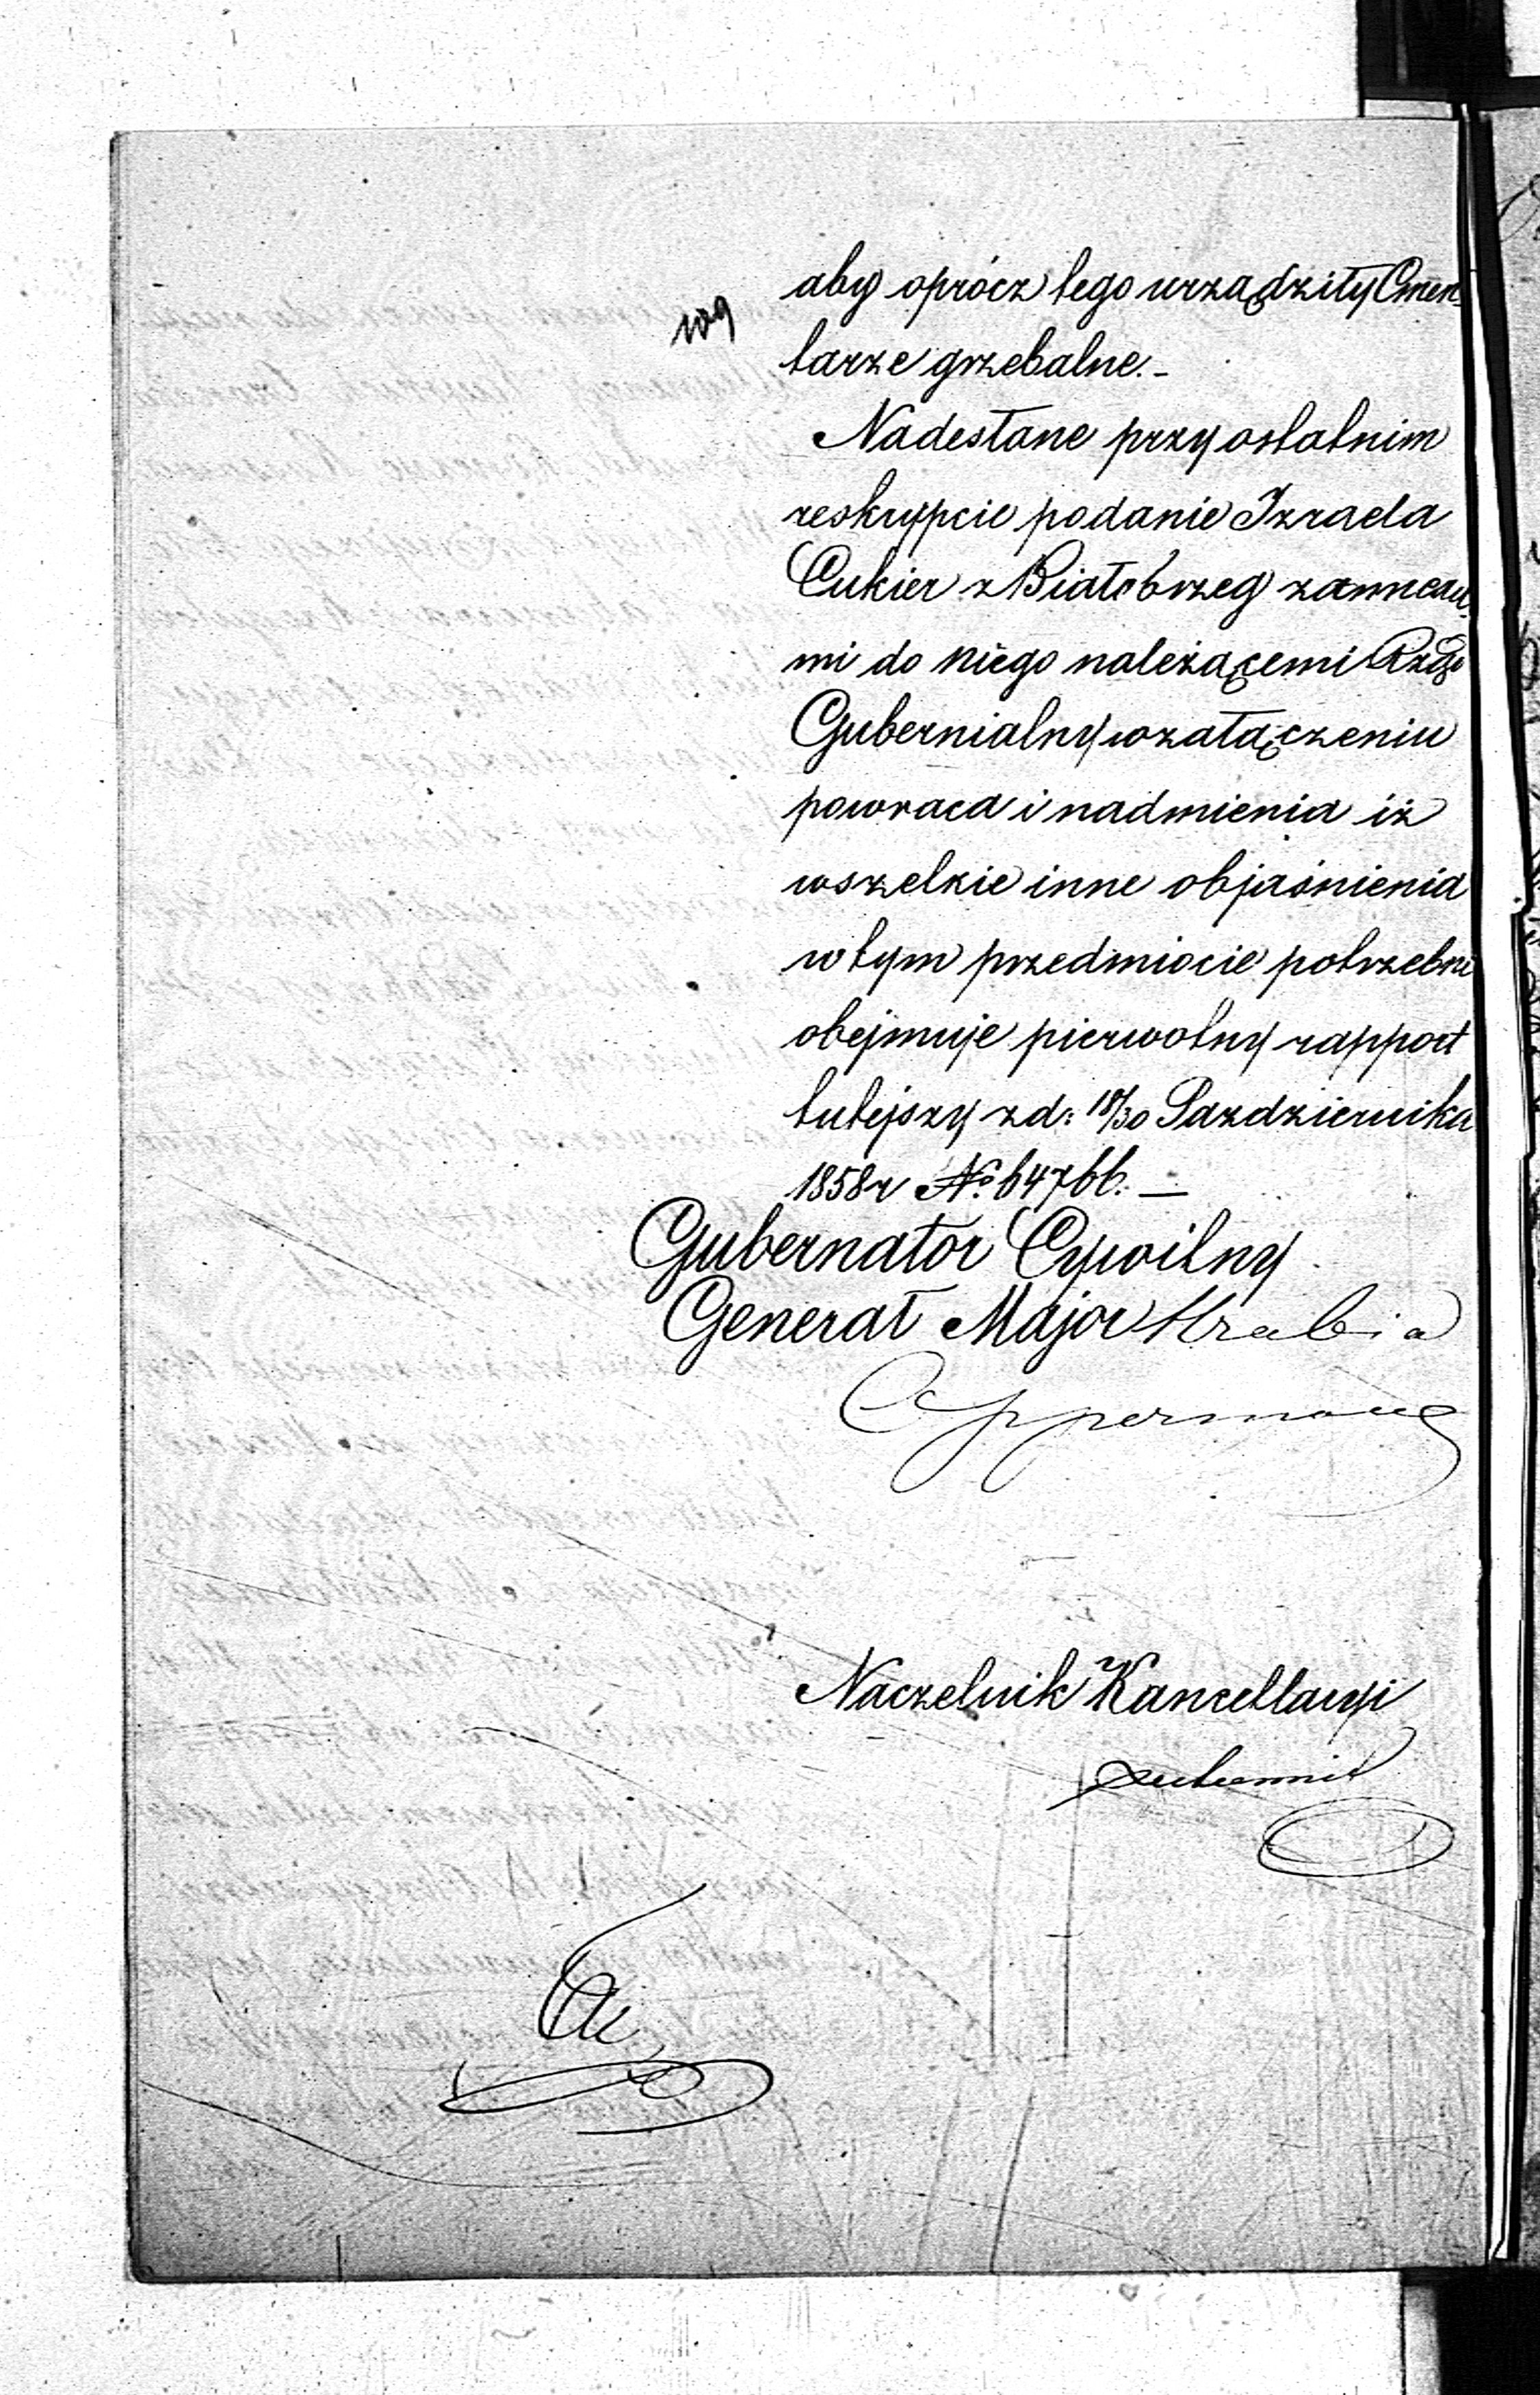 aby oprócz tego urządziły Cmen-
109
tarze grzebalne.-
Nadesłane przy ostatnim
reskrypcie podanie Izraela
Cukier z Białobrzeg z annexa-
mi do niego należącemi Rząd
Gubernialny w załączeniu
powraca i nadmienia iż
wszelkie inne objaśnienia
w tym przedmiocie potrzebne
obejmuje pierwotny rapport
tutejszy z d: 18/30 Pazdziernika
1858 r No 64766. —
Gubernator Cywilny
Generał Major Hrabia
Oppermann
Naczelnik Kancellaryi